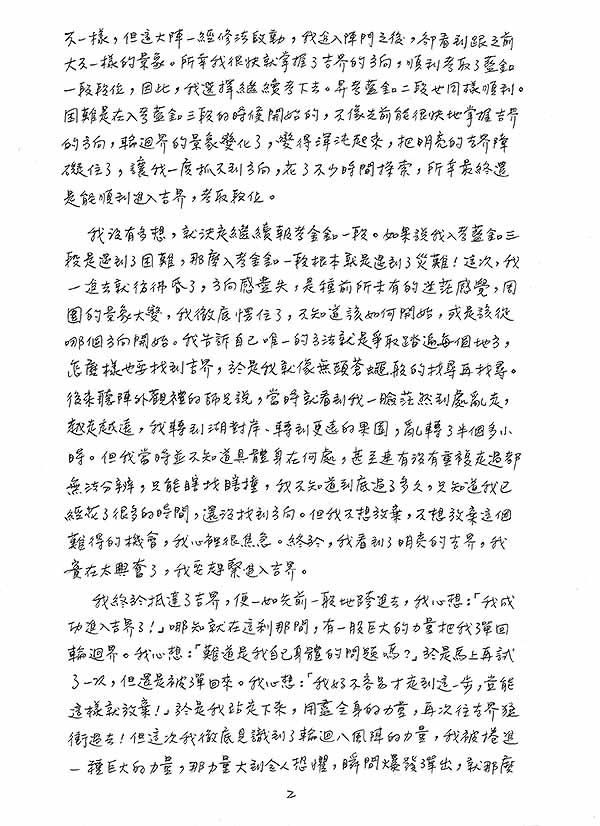 不一樣，但這大陣一經修法啟動，我進入陣門之後，卻看到跟之前
大不一樣的景象。所幸我很快就掌握了吉界的方向，順利考取了藍釦
一段段位，因此，我選擇繼續考下去。且考藍釦二段也同樣順利。
困難是在入考藍釦三段的時候開始的，不像先前能很快地掌握吉界
的方向，輪迴界的景象變化了，變得渾沌起來，把明亮的吉界障
礙住了，讓我一度抓不到方向，花了不少時間探索，所幸最終還
是能順利進入吉界，考取段位。
我沒有多想，就決定繼續報考金釦一段。如果說我入考藍釦三
段是遇到了困難，那麼入考金釦一段根本就是遇到了災難！這次，我
一進去就彷彿昏了，方向感盡失，是種前所未有的迷茫感覺，周
圍的景象大變，我徹底愣住了，不知道該如何開始，或是該從
哪個方向開始。我告訴自己唯一的方法就是爭取踏遍每個地方，
怎麼樣也要找到吉界，於是我就像無頭蒼蠅般的找尋再找尋。
後來聽陣外觀禮的師兄說，當時就看到我一臉茫然到處亂走，
越走越遠，我轉到湖對岸、轉到更遠的果園，亂轉了半個多小
時。但我當時並不知道具體身在何處，甚至連有沒有重複走過都
無法分辨，只能瞎找瞎撞，我不知道到底過了多久，只知道我已
經花了很多的時間，還沒找到方向。但我不想放棄，不想放棄這個
難得的機會，我心裡很焦急。終於，我看到了明亮的吉界，我
實在太興奮了，我要趕緊進入吉界。
我終於抵達了吉界，便一如先前一般地跨進去，我心想：「我成
功進入吉界了！」哪知就在這剎那間，有一股巨大的力量把我彈回
輪迴界。我心想：「難道是我自己身體的問題嗎？」於是馬上再試
了一次，但還是被彈回來。我心想：「我好不容易才走到這一步，豈能
這樣就放棄！」於是我站定下來，用盡全身的力量，再次往吉界猛
衝過去！但這次我徹底見識到了輪迴八風陣的力量，我被捲進
一種巨大的力量，那力量大到令人恐懼，瞬間爆發彈出，就那麼
2